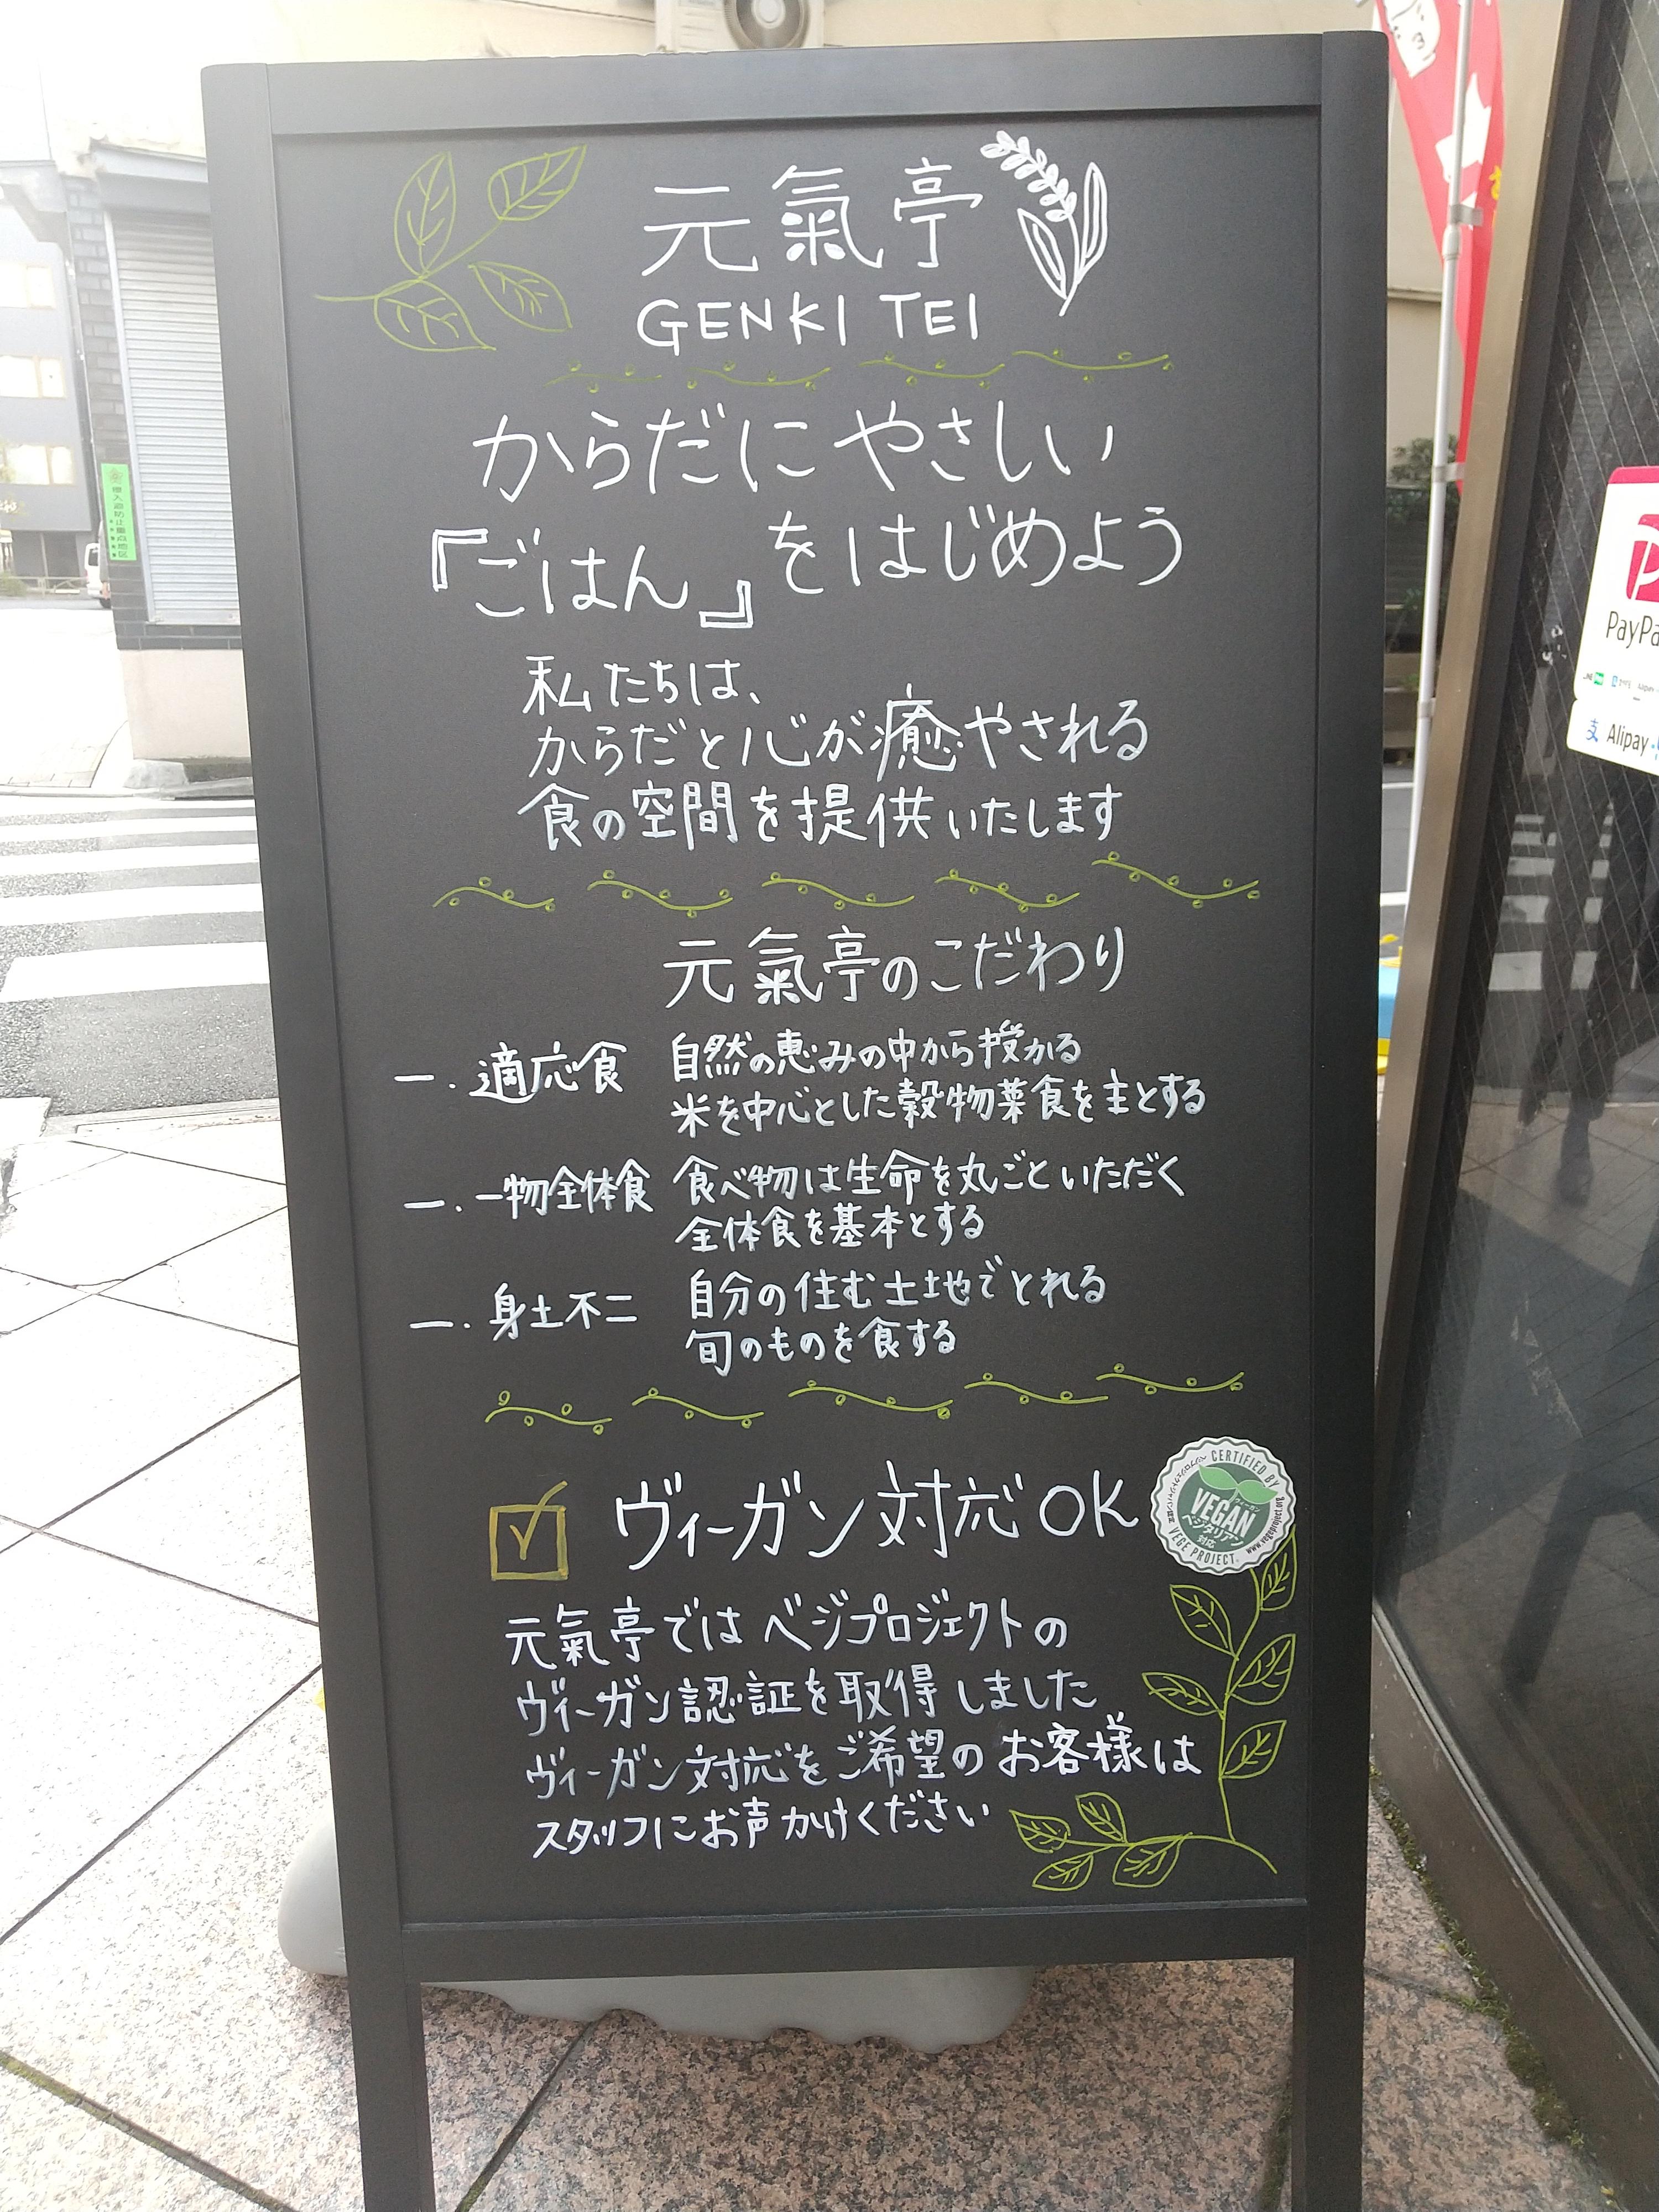 元氣亭
GENKI TEI
からだにやさしい
『ごはん』をはじめよう
私たちは、
からだと心が癒やされる
食の空間を提供いたします
元氣亭のこだわり
一. 適応食 自然の恵みの中から授かる
米を中心とした穀物菜食を主とする
一. 一物全体食 食べ物は生命を丸ごといただく
全体食を基本とする
一. 身土不二 自分の住む土地でとれる
旬のものを食する
ヴィーガン対応OK
CERTIFIED BY
VEGAN
ヴィーガン
ベジタリアン
対応
VEGE PROJECT.
www.vegeproject.org
元氣亭ではベジプロジェクトの
ヴィーガン認証を取得しました
ヴィーガン対応をご希望のお客様は
スタッフにお声かけください
PayPa
Alipay